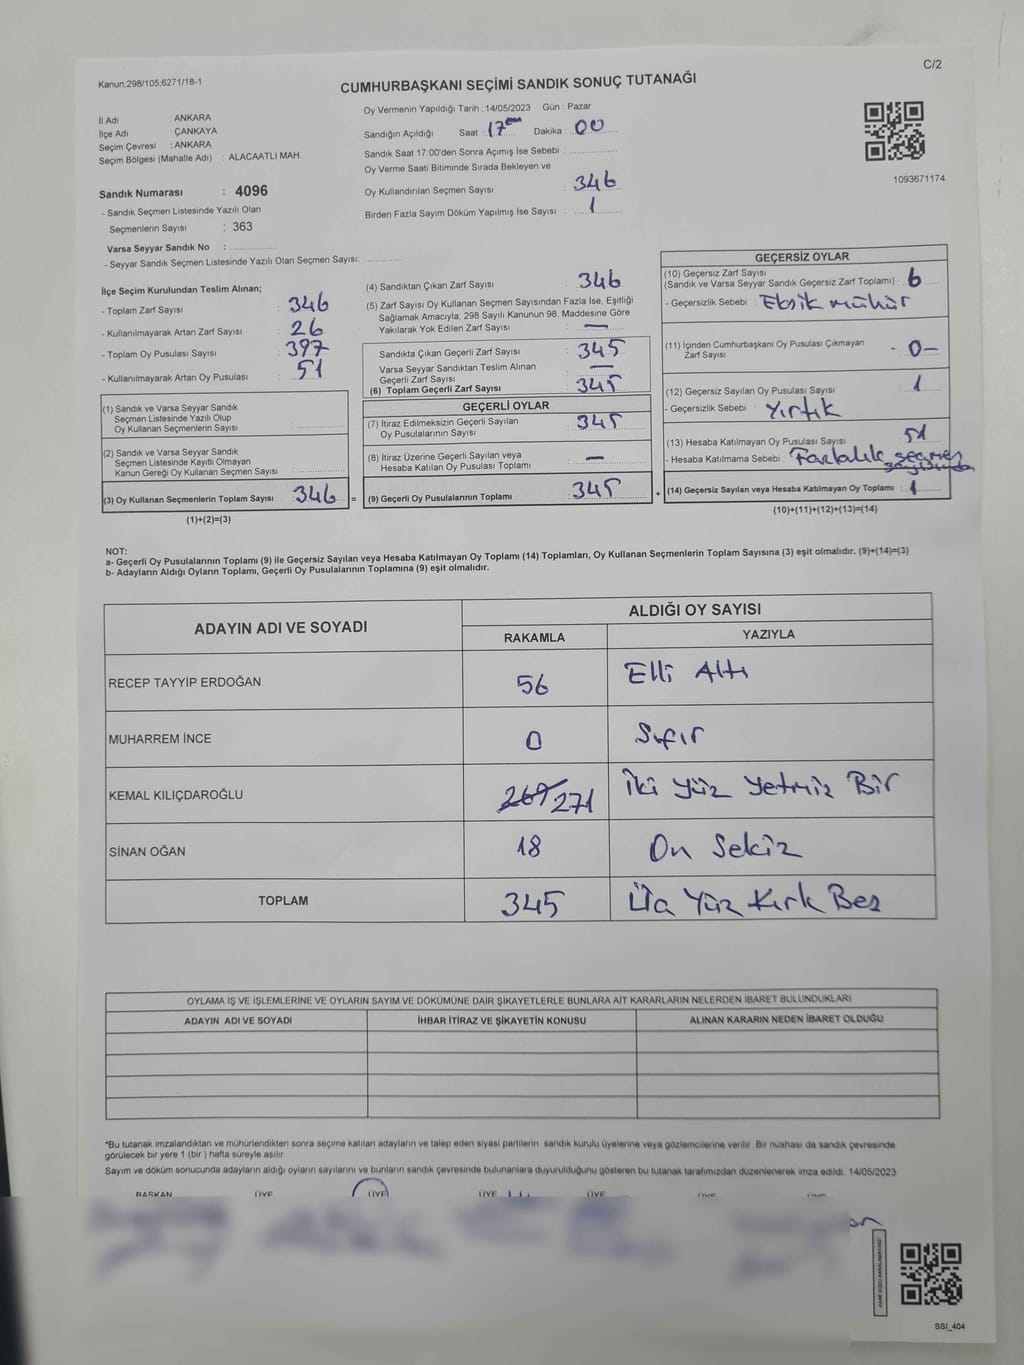 Kanun;298/105;6271/18-1
C/2
CUMHURBAŞKANI SEÇİMİ SANDIK SONUÇ TUTANAĞI
İl Adı : ANKARA
İlçe Adı : ÇANKAYA
Seçim Çevresi : ANKARA
Seçim Bölgesi (Mahalle Adı) : ALACAATLI MAH.
Oy Vermenin Yapıldığı Tarih : 14/05/2023 Gün : Pazar
Sandığın Açıldığı Saat : 17 Dakika : 00
Sandık Saat 17:00'den Sonra Açımış İse Sebebi :
Oy Verme Saati Bitiminde Sırada Bekleyen ve
Oy Kullandırılan Seçmen Sayısı 346
Birden Fazla Sayım Döküm Yapılmış İse Sayısı : 1
1093671174
Sandık Numarası : 4096
- Sandık Seçmen Listesinde Yazılı Olan
Seçmenlerin Sayısı : 363
Varsa Seyyar Sandık No :
- Seyyar Sandık Seçmen Listesinde Yazılı Olan Seçmen Sayısı:
İlçe Seçim Kurulundan Teslim Alınan;
- Toplam Zarf Sayısı : 346
- Kullanılmayarak Artan Zarf Sayısı : 26
- Toplam Oy Pusulası Sayısı : 397
- Kullanılmayarak Artan Oy Pusulası : 51
(1) Sandık ve Varsa Seyyar Sandık
Seçmen Listesinde Yazılı Olup
Oy Kullanan Seçmenlerin Sayısı :
(2) Sandık ve Varsa Seyyar Sandık
Seçmen Listesinde Kayıtlı Olmayan
Kanun Gereği Oy Kullanan Seçmen Sayısı :
(3) Oy Kullanan Seçmenlerin Toplam Sayısı 346 =
(1)+(2)=(3)
(4) Sandıktan Çıkan Zarf Sayısı : 346
(5) Zarf Sayısı Oy Kullanan Seçmen Sayısından Fazla İse, Eşitliği
Sağlamak Amacıyla; 298 Sayılı Kanunun 98. Maddesine Göre
Yakılarak Yok Edilen Zarf Sayısı : —
Sandıkta Çıkan Geçerli Zarf Sayısı : 345
Varsa Seyyar Sandıktan Teslim Alınan
Geçerli Zarf Sayısı : —
(6) Toplam Geçerli Zarf Sayısı : 345
GEÇERLİ OYLAR
(7) İtiraz Edilmeksizin Geçerli Sayılan
Oy Pusulalarının Sayısı : 345
(8) İtiraz Üzerine Geçerli Sayılan veya
Hesaba Katılan Oy Pusulası Toplamı : —
(9) Geçerli Oy Pusulalarının Toplamı : 345 +
GEÇERSİZ OYLAR
(10) Geçersiz Zarf Sayısı
(Sandık ve Varsa Seyyar Sandık Geçersiz Zarf Toplamı) : 6
- Geçersizlik Sebebi : Eksik mühür
(11) İçinden Cumhurbaşkanı Oy Pusulası Çıkmayan
Zarf Sayısı - 0 -
(12) Geçersiz Sayılan Oy Pusulası Sayısı : 1
- Geçersizlik Sebebi : Yırtık
(13) Hesaba Katılmayan Oy Pusulası Sayısı : 51
- Hesaba Katılmama Sebebi : Fazlalık seçmen
(14) Geçersiz Sayılan veya Hesaba Katılmayan Oy Toplamı : 1
(10)+(11)+(12)+(13)=(14)
NOT:
a- Geçerli Oy Pusulalarının Toplamı (9) ile Geçersiz Sayılan veya Hesaba Katılmayan Oy Toplamı (14) Toplamları, Oy Kullanan Seçmenlerin Toplam Sayısına (3) eşit olmalıdır. (9)+(14)=(3)
b- Adayların Aldığı Oyların Toplamı, Geçerli Oy Pusulalarının Toplamına (9) eşit olmalıdır.
ADAYIN ADI VE SOYADI
ALDIĞI OY SAYISI
RAKAMLA YAZIYLA
RECEP TAYYİP ERDOĞAN 56 Elli Altı
MUHARREM İNCE 0 Sıfır
KEMAL KILIÇDAROĞLU 269 271 İki Yüz Yetmiz Bir
SİNAN OĞAN 18 On Sekiz
TOPLAM 345 Üç Yüz Kırk Beş
OYLAMA İŞ VE İŞLEMLERİNE VE OYLARIN SAYIM VE DÖKÜMÜNE DAİR ŞİKAYETLERLE BUNLARA AİT KARARLARIN NELERDEN İBARET BULUNDUKLARI
ADAYIN ADI VE SOYADI İHBAR İTİRAZ VE ŞİKAYETİN KONUSU ALINAN KARARIN NEDEN İBARET OLDUĞU
*Bu tutanak imzalandıktan ve mühürlendikten sonra seçime katılan adayların ve talep eden siyasi partilerin sandık kurulu üyelerine veya gözlemcilerine verilir. Bir nüshası da sandık çevresinde
görülecek bir yere 1 (bir ) hafta süreyle asılır.
Sayım ve döküm sonucunda adayların aldığı oyların sayılarını ve bunların sandık çevresinde bulunanlara duyurulduğunu gösteren bu tutanak tarafımızdan düzenlenerek imza edildi. 14/05/2023
BAŞKAN ÜYE ÜYE ÜYE ÜYE ÜYE ÜYE
SSI_404